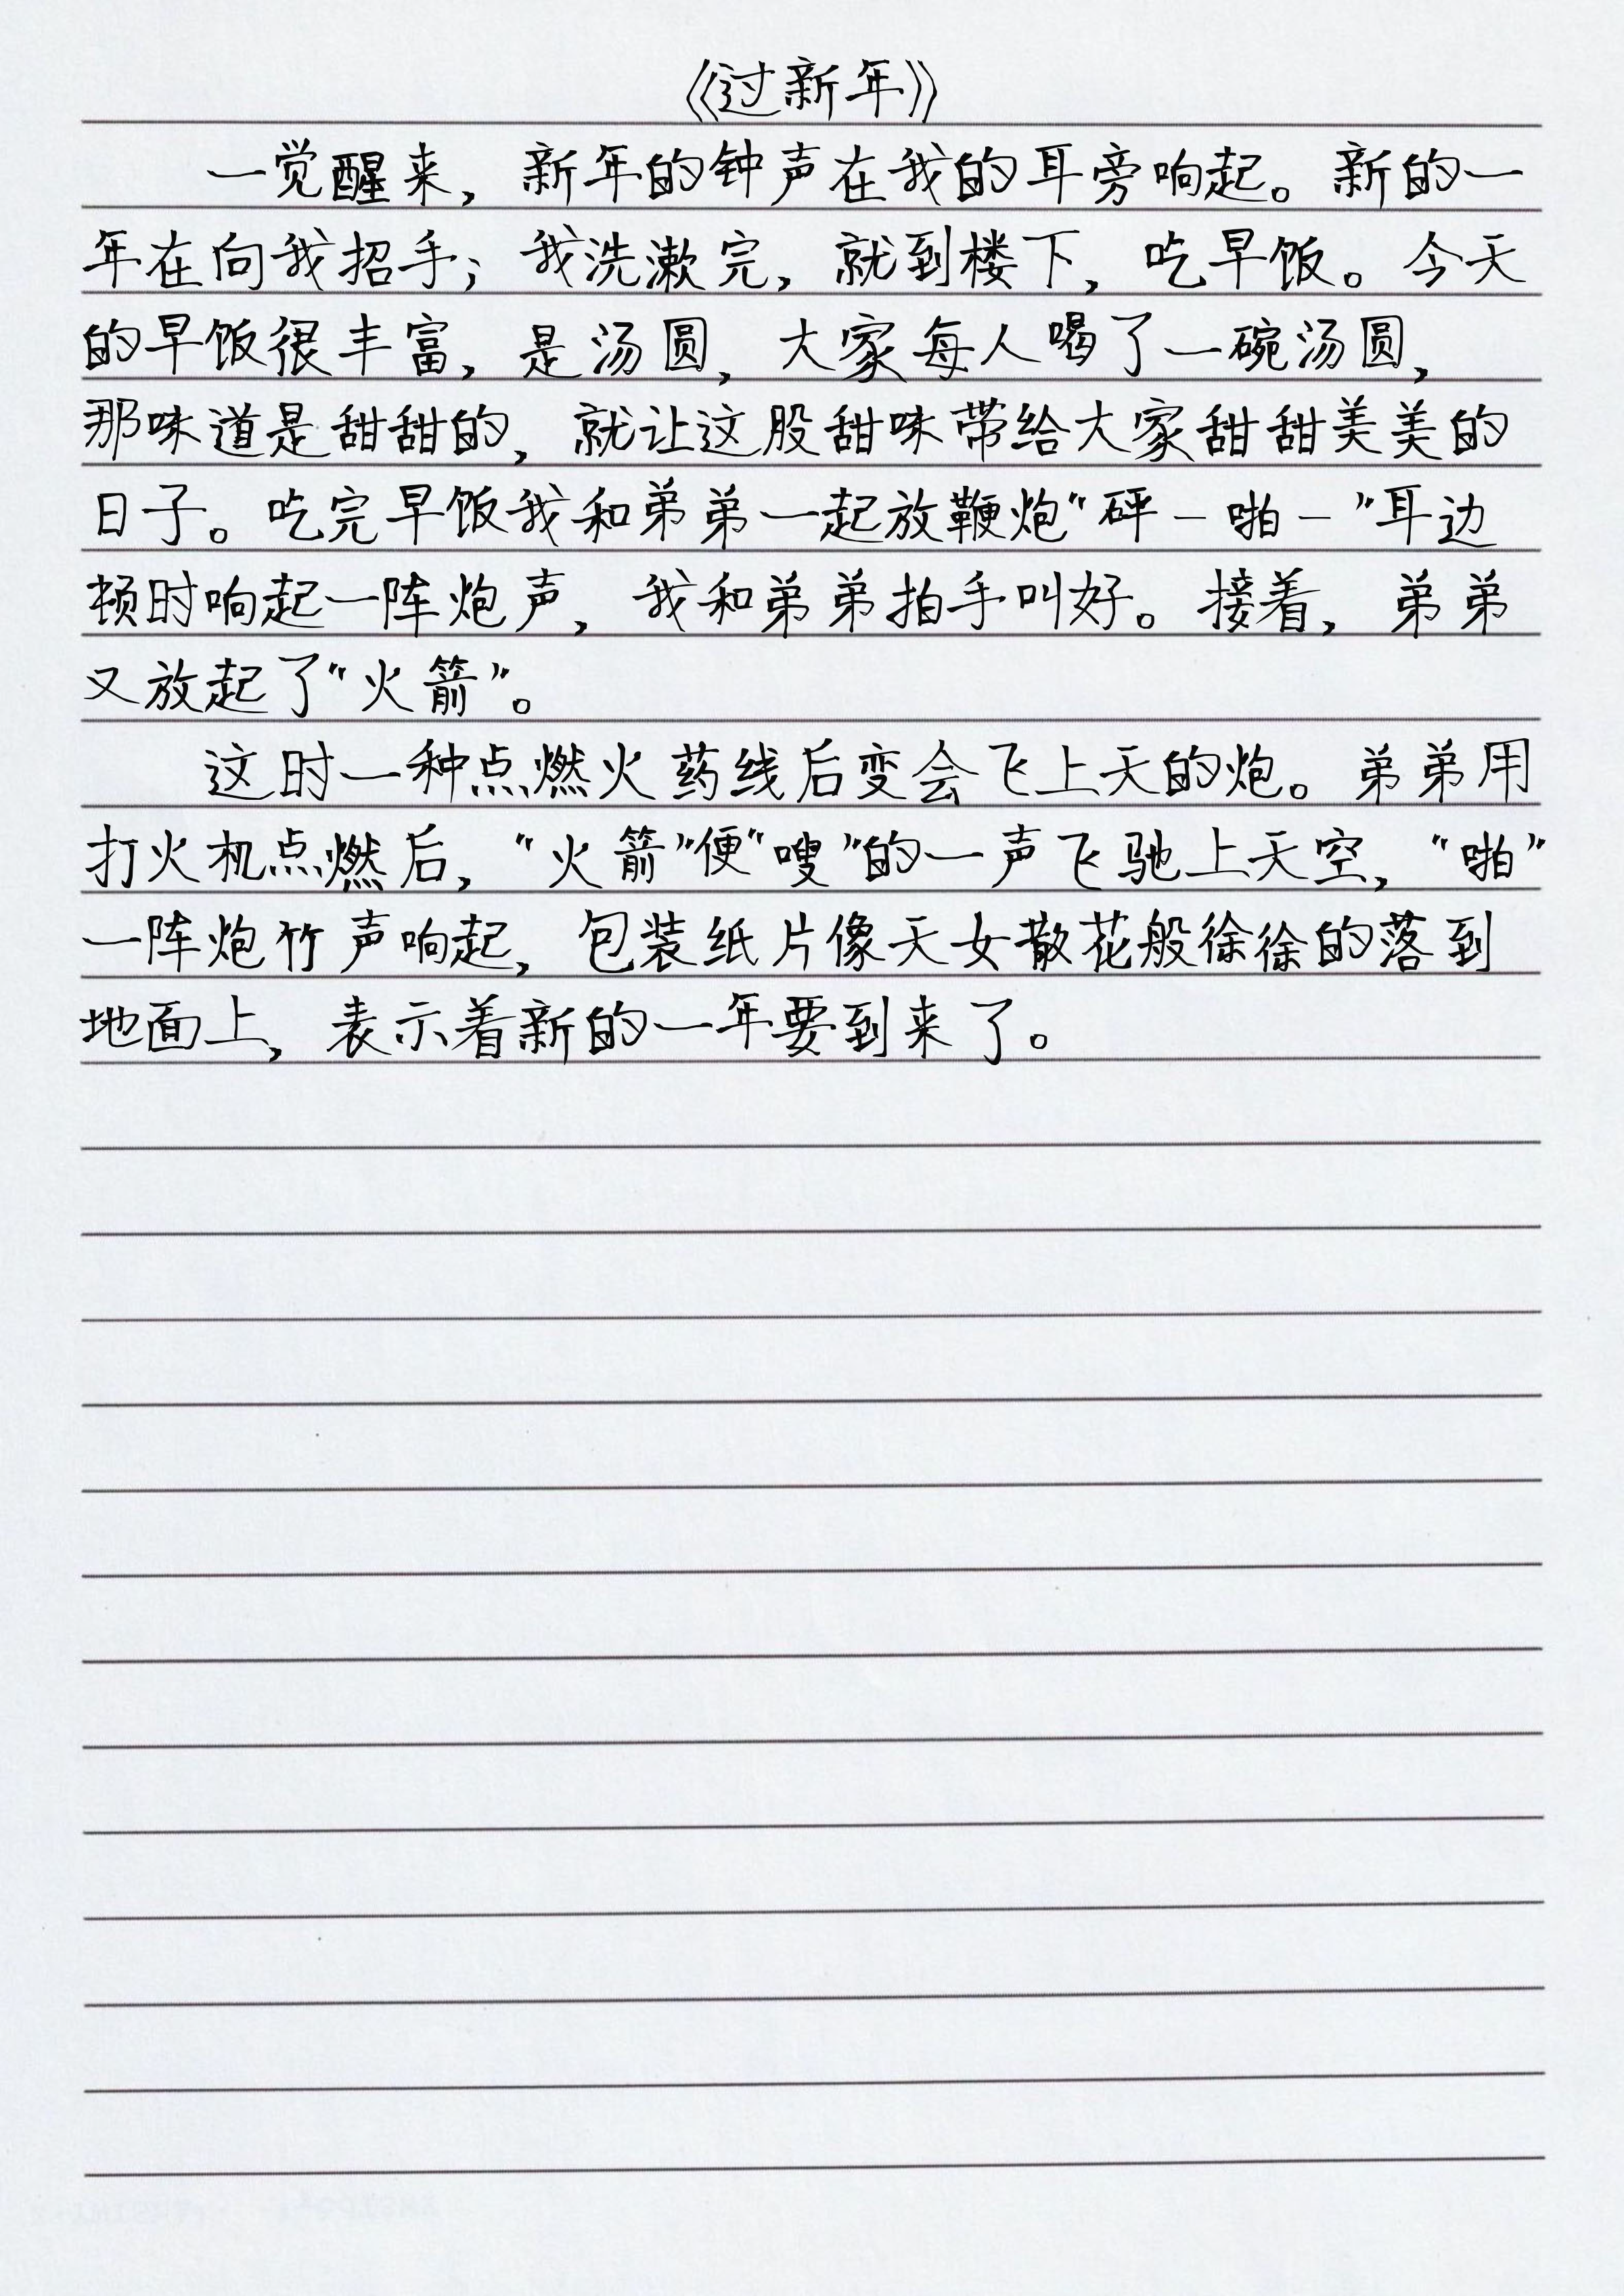 《过新年》
一觉醒来，新年的钟声在我的耳旁响起。新的一
年在向我招手；我洗漱完，就到楼下，吃早饭。今天
的早饭很丰富，是汤圆，大家每人喝了一碗汤圆，
那味道是甜甜的，就让这股甜味带给大家甜甜美美的
日子。吃完早饭我和弟弟一起放鞭炮“砰－啪－”耳边
顿时响起一阵炮声，我和弟弟拍手叫好。接着，弟弟
又放起了“火箭”。
这时一种点燃火药线后变会飞上天的炮。弟弟用
打火机点燃后，“火箭”便“嗖”的一声飞驰上天空，“啪”
一阵炮竹声响起，包装纸片像天女散花般徐徐的落到
地面上，表示着新的一年要到来了。